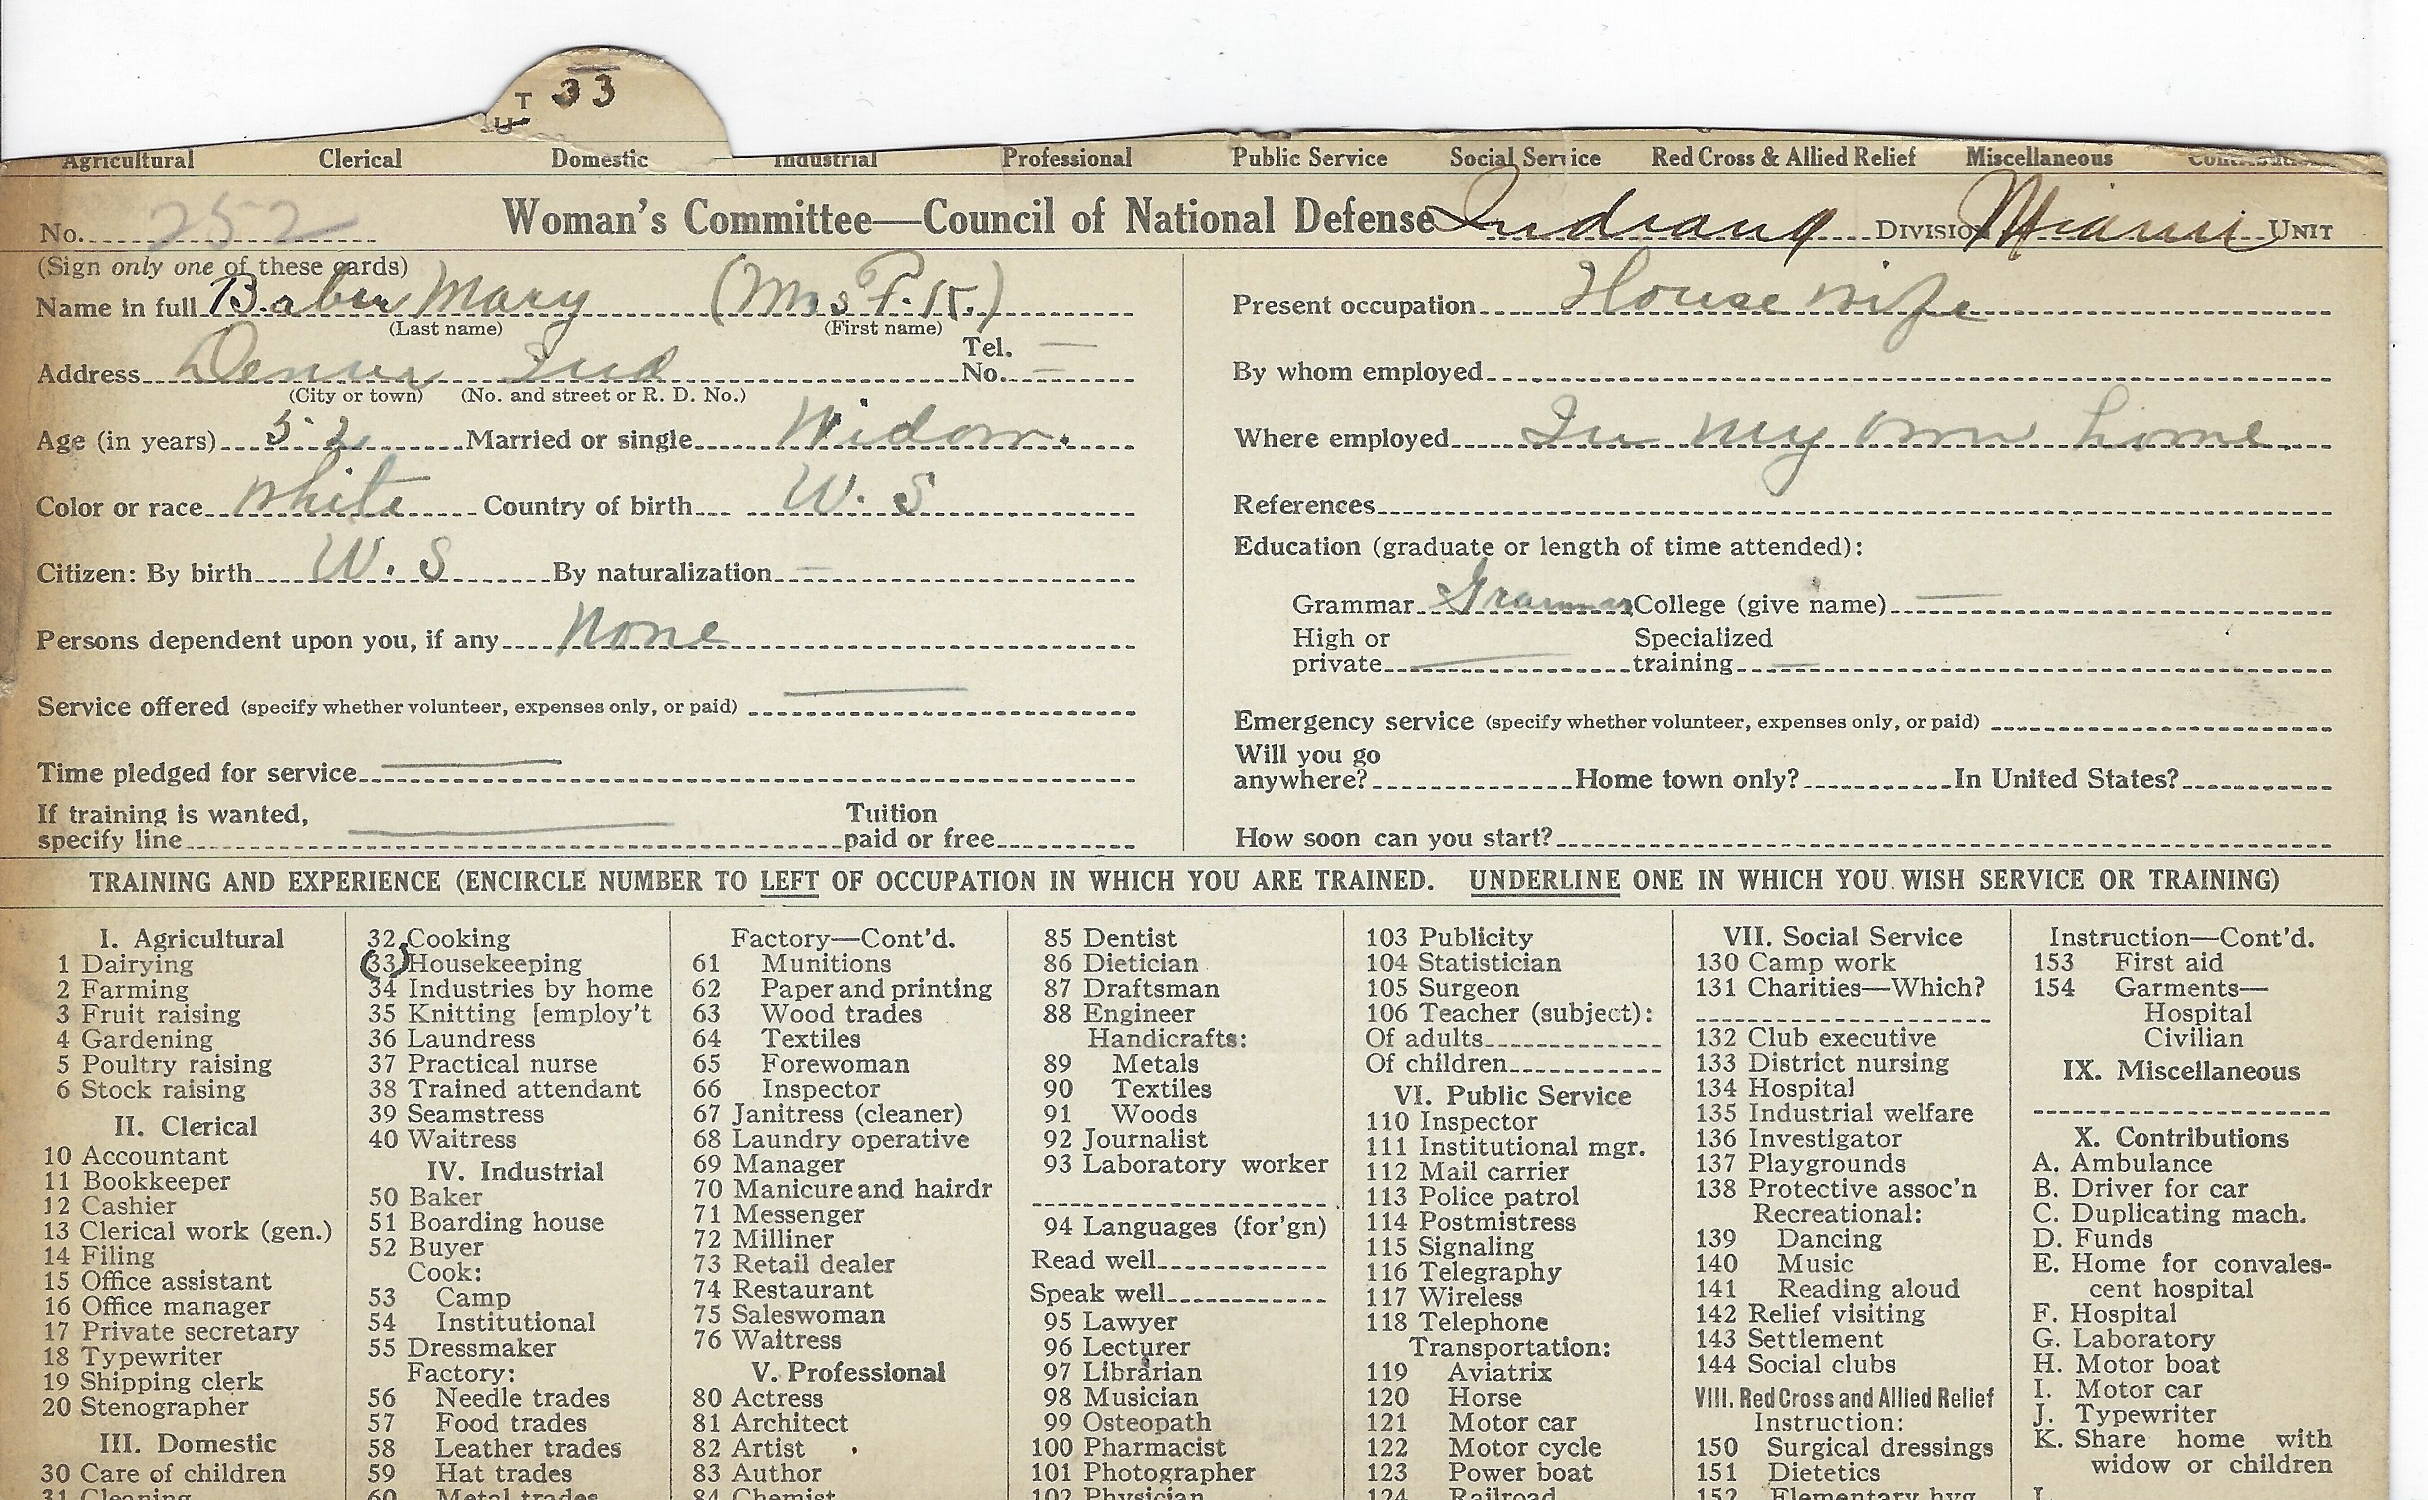 T 33
Agricultural Clerical Domestic Industrial Professional Public Service Social Service Red Cross & Allied Relief Miscellaneous Contributions
No. 252 Woman's Committee—Council of National Defense Indiana Division Miami Unit
(Sign only one of these cards)
Name in full Baber Mary (Mrs P. K.)
(Last name) (First name)
Address Denver Ind Tel. No. —
(City or town) (No. and street or R. D. No.)
Age (in years) 52 Married or single Widow.
Color or race White Country of birth U. S
Citizen: By birth U. S By naturalization —
Persons dependent upon you, if any None
Service offered (specify whether volunteer, expenses only, or paid) —
Time pledged for service —
If training is wanted, specify line — Tuition paid or free
Present occupation House wife
By whom employed
Where employed In my own home.
References
Education (graduate or length of time attended):
Grammar Grammar College (give name) —
High or private — Specialized training —
Emergency service (specify whether volunteer, expenses only, or paid)
Will you go anywhere? Home town only? In United States?
How soon can you start?
TRAINING AND EXPERIENCE (ENCIRCLE NUMBER TO LEFT OF OCCUPATION IN WHICH YOU ARE TRAINED. UNDERLINE ONE IN WHICH YOU WISH SERVICE OR TRAINING)
I. Agricultural
1 Dairying
2 Farming
3 Fruit raising
4 Gardening
5 Poultry raising
6 Stock raising
II. Clerical
10 Accountant
11 Bookkeeper
12 Cashier
13 Clerical work (gen.)
14 Filing
15 Office assistant
16 Office manager
17 Private secretary
18 Typewriter
19 Shipping clerk
20 Stenographer
III. Domestic
30 Care of children
31 Cleaning
32 Cooking
33 Housekeeping
34 Industries by home
35 Knitting [employ't
36 Laundress
37 Practical nurse
38 Trained attendant
39 Seamstress
40 Waitress
IV. Industrial
50 Baker
51 Boarding house
52 Buyer
Cook:
53 Camp
54 Institutional
55 Dressmaker
Factory:
56 Needle trades
57 Food trades
58 Leather trades
59 Hat trades
60 Metal trades
Factory—Cont'd.
61 Munitions
62 Paper and printing
63 Wood trades
64 Textiles
65 Forewoman
66 Inspector
67 Janitress (cleaner)
68 Laundry operative
69 Manager
70 Manicure and hairdr
71 Messenger
72 Milliner
73 Retail dealer
74 Restaurant
75 Saleswoman
76 Waitress
V. Professional
80 Actress
81 Architect
82 Artist
83 Author
84 Chemist
85 Dentist
86 Dietician
87 Draftsman
88 Engineer
Handicrafts:
89 Metals
90 Textiles
91 Woods
92 Journalist
93 Laboratory worker
94 Languages (for'gn)
Read well
Speak well
95 Lawyer
96 Lecturer
97 Librarian
98 Musician
99 Osteopath
100 Pharmacist
101 Photographer
102 Physician
103 Publicity
104 Statistician
105 Surgeon
106 Teacher (subject):
Of adults
Of children
VI. Public Service
110 Inspector
111 Institutional mgr.
112 Mail carrier
113 Police patrol
114 Postmistress
115 Signaling
116 Telegraphy
117 Wireless
118 Telephone
Transportation:
119 Aviatrix
120 Horse
121 Motor car
122 Motor cycle
123 Power boat
124 Railroad
VII. Social Service
130 Camp work
131 Charities—Which?
132 Club executive
133 District nursing
134 Hospital
135 Industrial welfare
136 Investigator
137 Playgrounds
138 Protective assoc'n
Recreational:
139 Dancing
140 Music
141 Reading aloud
142 Relief visiting
143 Settlement
144 Social clubs
VIII. Red Cross and Allied Relief
Instruction:
150 Surgical dressings
151 Dietetics
152 Elementary hyg.
Instruction—Cont'd.
153 First aid
154 Garments—
Hospital
Civilian
IX. Miscellaneous
X. Contributions
A. Ambulance
B. Driver for car
C. Duplicating mach.
D. Funds
E. Home for convales-
cent hospital
F. Hospital
G. Laboratory
H. Motor boat
I. Motor car
J. Typewriter
K. Share home with
widow or children
L.